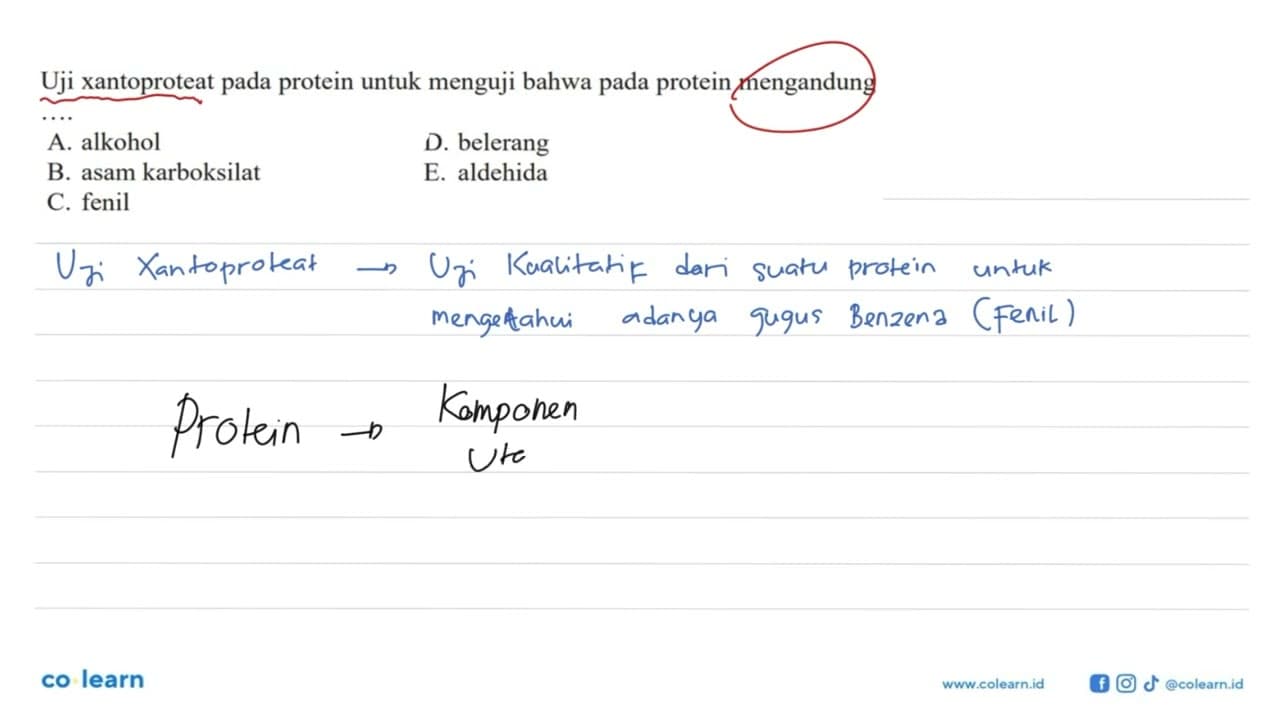 Uji xantoproteat pada protein untuk menguji bahwa pada protein mengandung
....
A. alkohol
B. asam karboksilat
C. fenil
D. belerang
E. aldehida
Uji Xantoproteat → Uji Kualitatif dari suatu protein untuk
mengetahui adanya gugus Benzena (Fenil)
Protein → Komponen
Uta
co learn
www.colearn.id @colearn.id